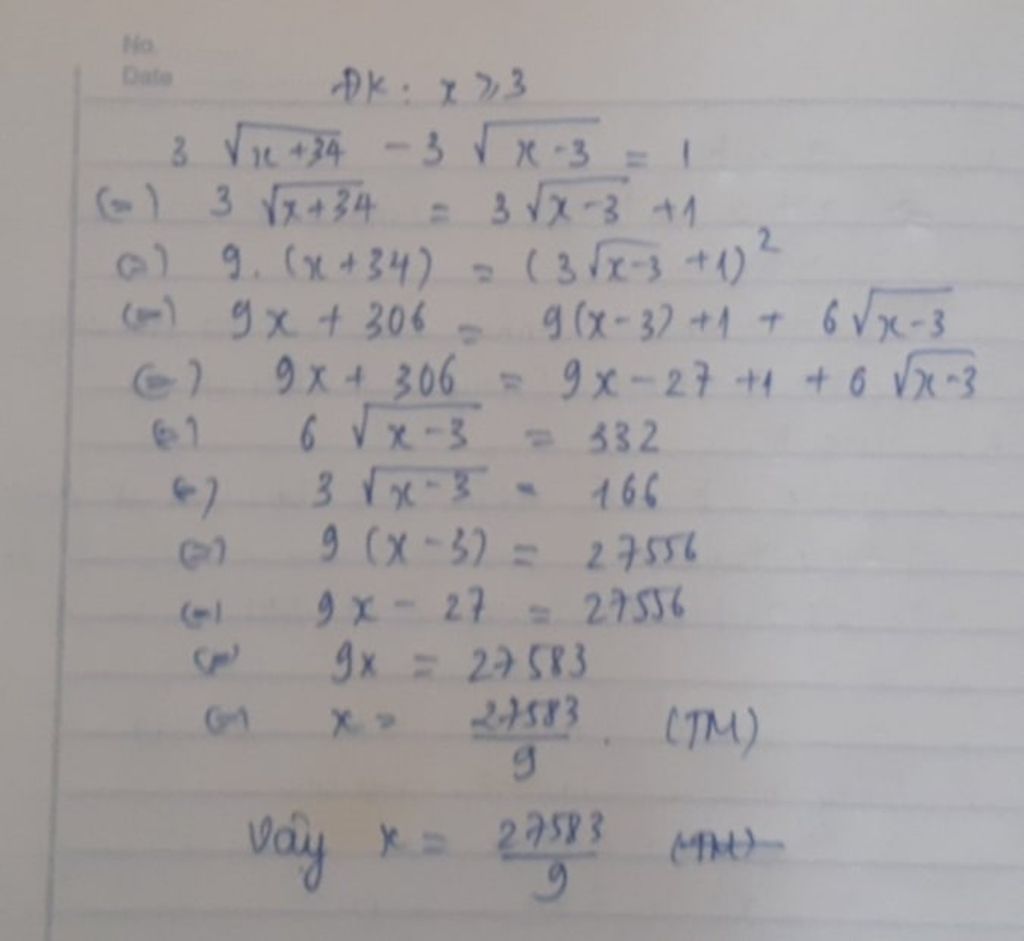 No.
Date
ĐK: x ⩾ 3
3 √(x+34) - 3 √(x-3) = 1
(=) 3 √(x+34) = 3√(x-3) +1
(=) 9. (x+34) = (3√(x-3) +1)²
(=) 9x + 306 = 9(x-3) +1 + 6√(x-3)
(=) 9x + 306 = 9x - 27 +1 + 6 √(x-3)
(=) 6 √(x-3) = 332
(=) 3 √(x-3) = 166
(=) 9 (x-3) = 27556
(=) 9x - 27 = 27556
(=) 9x = 27583
(=) x = 27583/9 . (TM)
Vậy x = 27583/9 (TM)